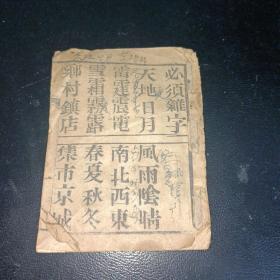 必須雜字
天地日月
風雨陰晴
雷霆震電
南北西東
雪霜霧露
春夏秋冬
鄉村鎮店
集市京城